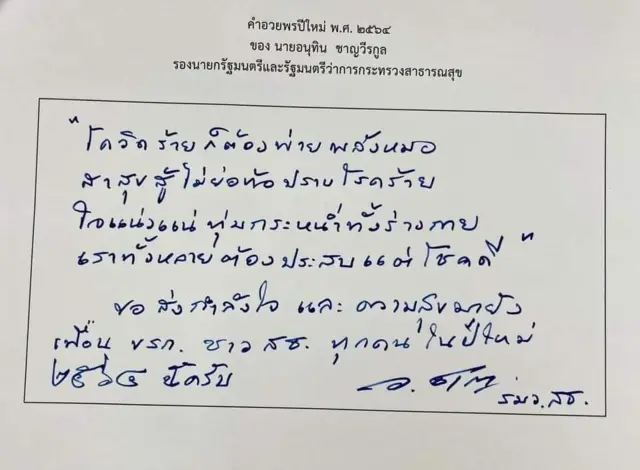 คำอวยพรปีใหม่ พ.ศ. ๒๕๖๔
ของ นายอนุทิน ชาญวีรกูล
รองนายกรัฐมนตรีและรัฐมนตรีว่าการกระทรวงสาธารณสุข
"โควิดร้ายก็ต้องพ่ายพลังหมอ
สาสุขสู้ไม่ย่อท้อปราบโรคร้าย
ใจแน่วแน่ ทุ่มกระหน่ำทั้งร่างกาย
เราทั้งหลายต้องประสบแต่โชคดี"
ขอส่งกำลังใจ และ ความสุขมายัง
เพื่อน ขรก. ชาว สธ. ทุกคน ในปีใหม่
๒๕๖๔ นี้ครับ
รมว.สธ.